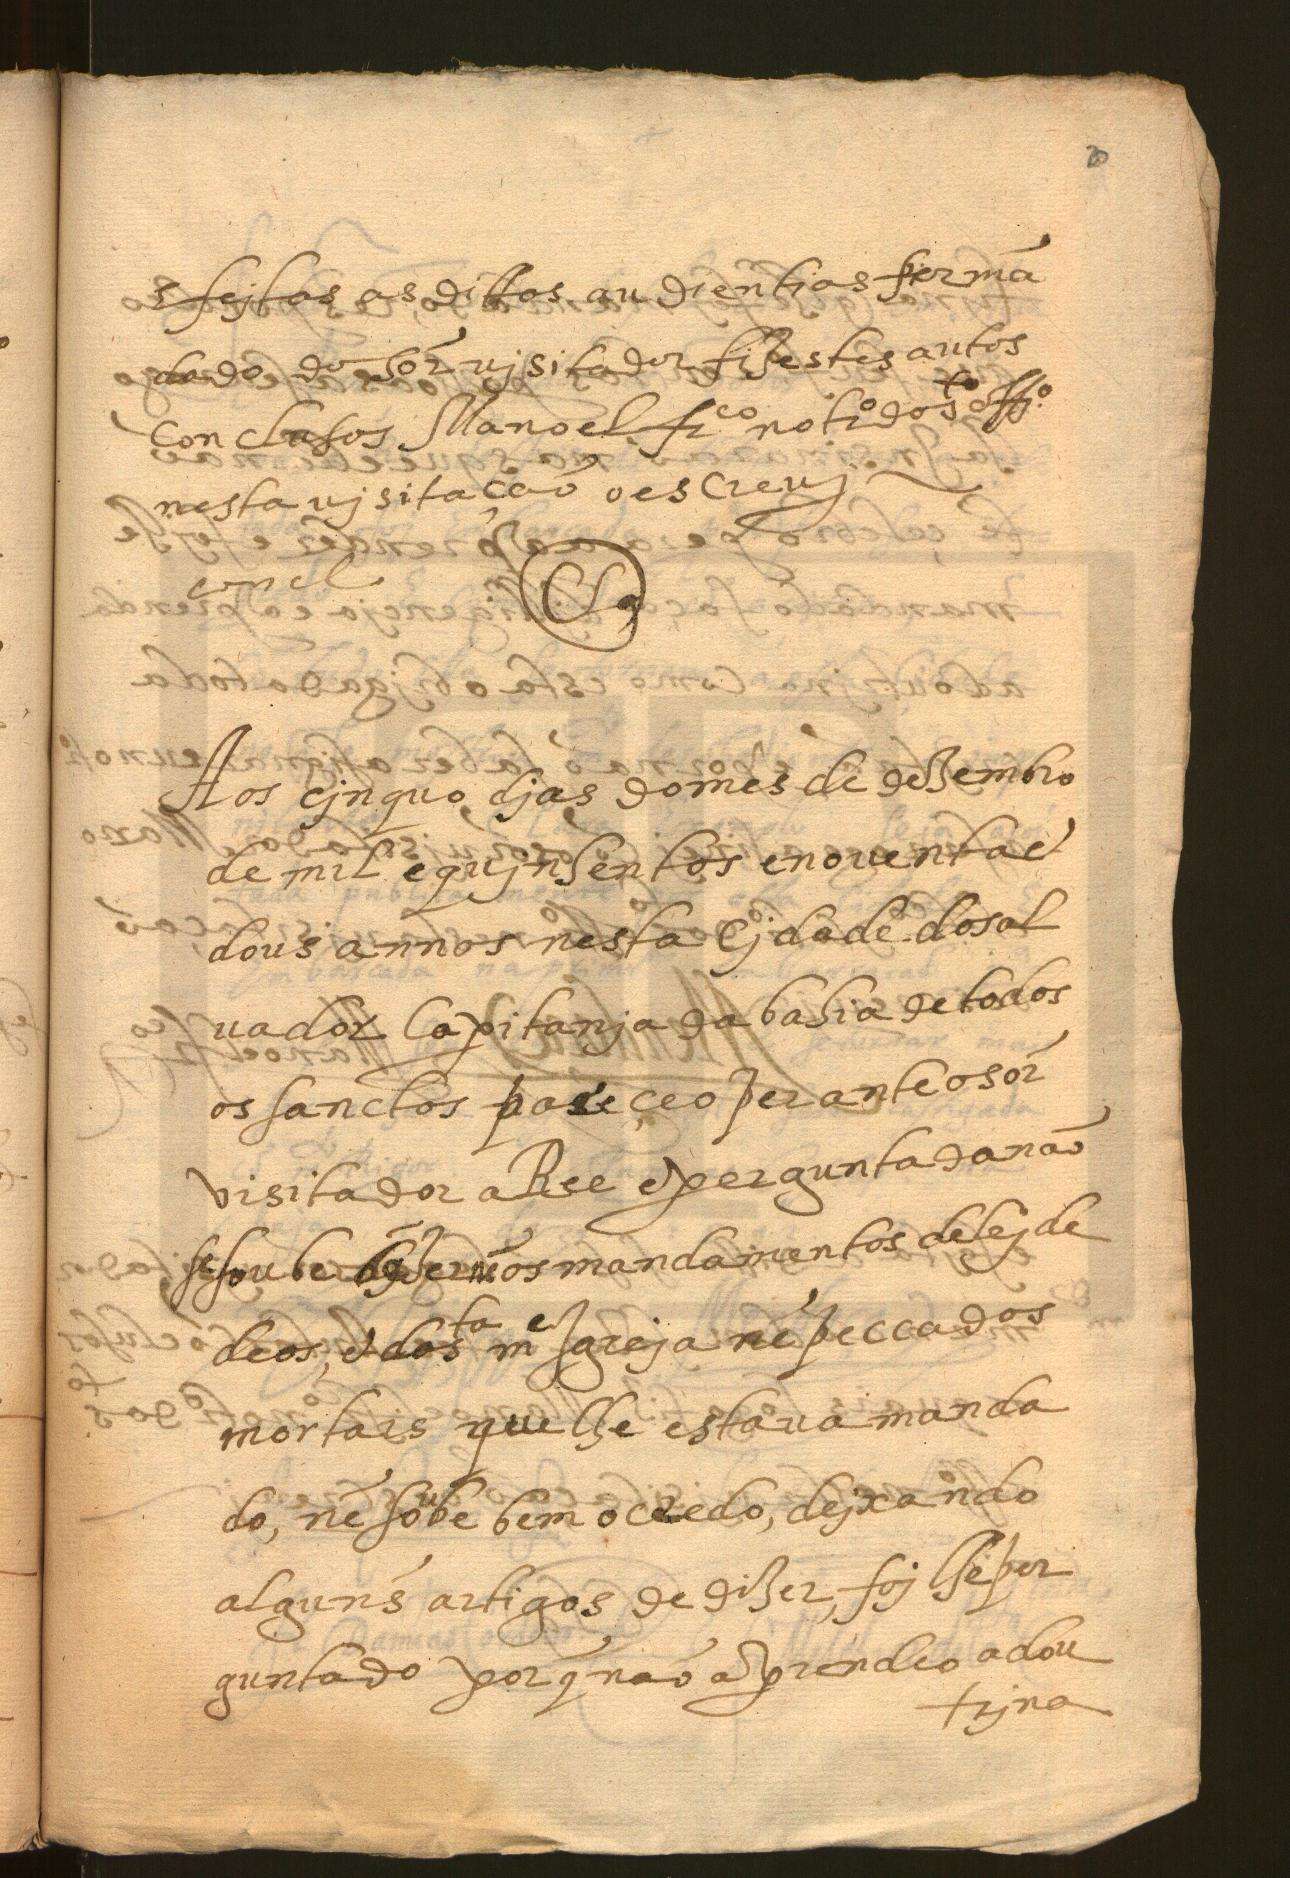 E fejtas as dittas audientjas per mã
dado do sõr vjsitador fiz estes autos
Conclusos Manoel frco notro do sto offo
nesta vjsitaçaõ o escrevj
concl
Clsos
Aos çjnquo djas do mes de dezembro
de mil e qujnhentos e noventa e
dous annos nesta çjdade do sal
vador Capitanja da bahia de todos
os sanctos pareçeo perante o sõr
visitador a Ree e perguntada naõ
se soube os mandamentos da lej de
deos, e da sta me Igreja nẽ peccados
mortais que lhe estava manda
do, nẽ soube bem o credo, dejxando
alguns artigos de dizer, foj lhe per
guntado porq̃ naõ aprendeo a dou
trjna